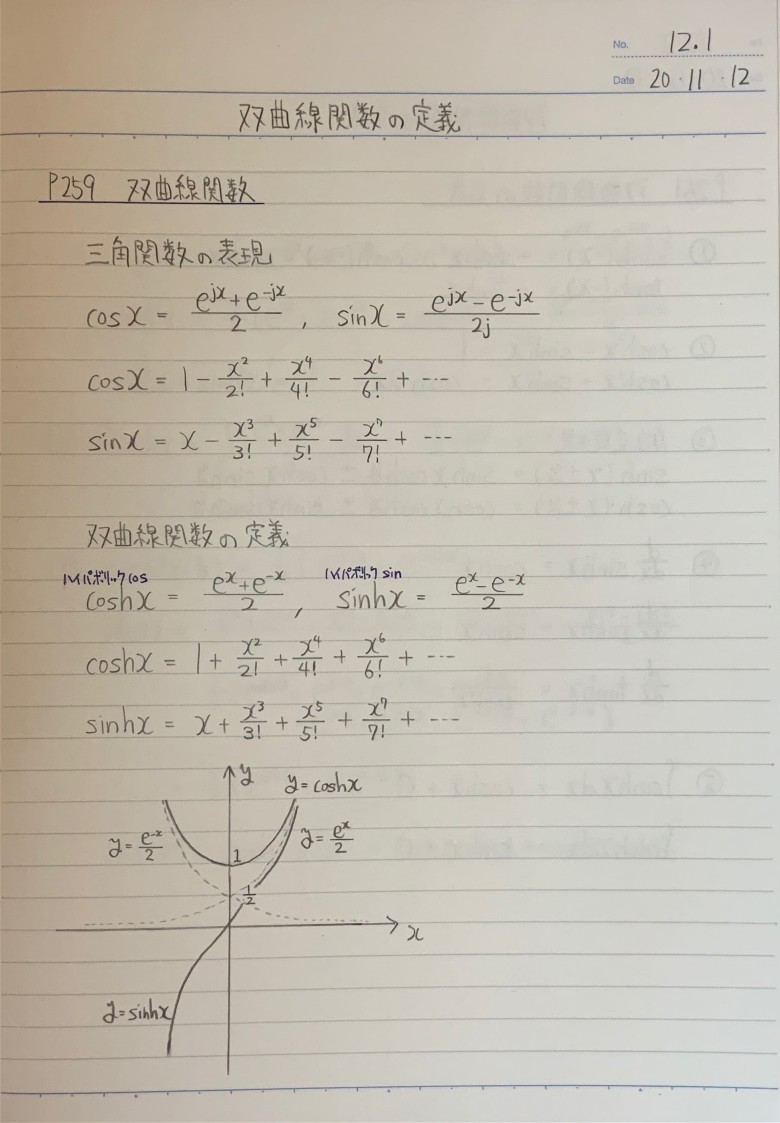 No. 12.1
Date 20・11・12
双曲線関数の定義
P259 双曲線関数
三角関数の表現
cosx = (e^{jx}+e^{-jx})/2 , sinx = (e^{jx}-e^{-jx})/2j
cosx = 1 - x²/2! + x⁴/4! - x⁶/6! + ---
sinx = x - x³/3! + x⁵/5! - x⁷/7! + ---
双曲線関数の定義
ハイパボリックcos ハイパボリックsin
coshx = (e^x+e^{-x})/2 , sinhx = (e^x-e^{-x})/2
coshx = 1 + x²/2! + x⁴/4! + x⁶/6! + ---
sinhx = x + x³/3! + x⁵/5! + x⁷/7! + ---
y
y=coshx
y=e^{-x}/2
y=e^x/2
1
1/2
x
y=sinhx